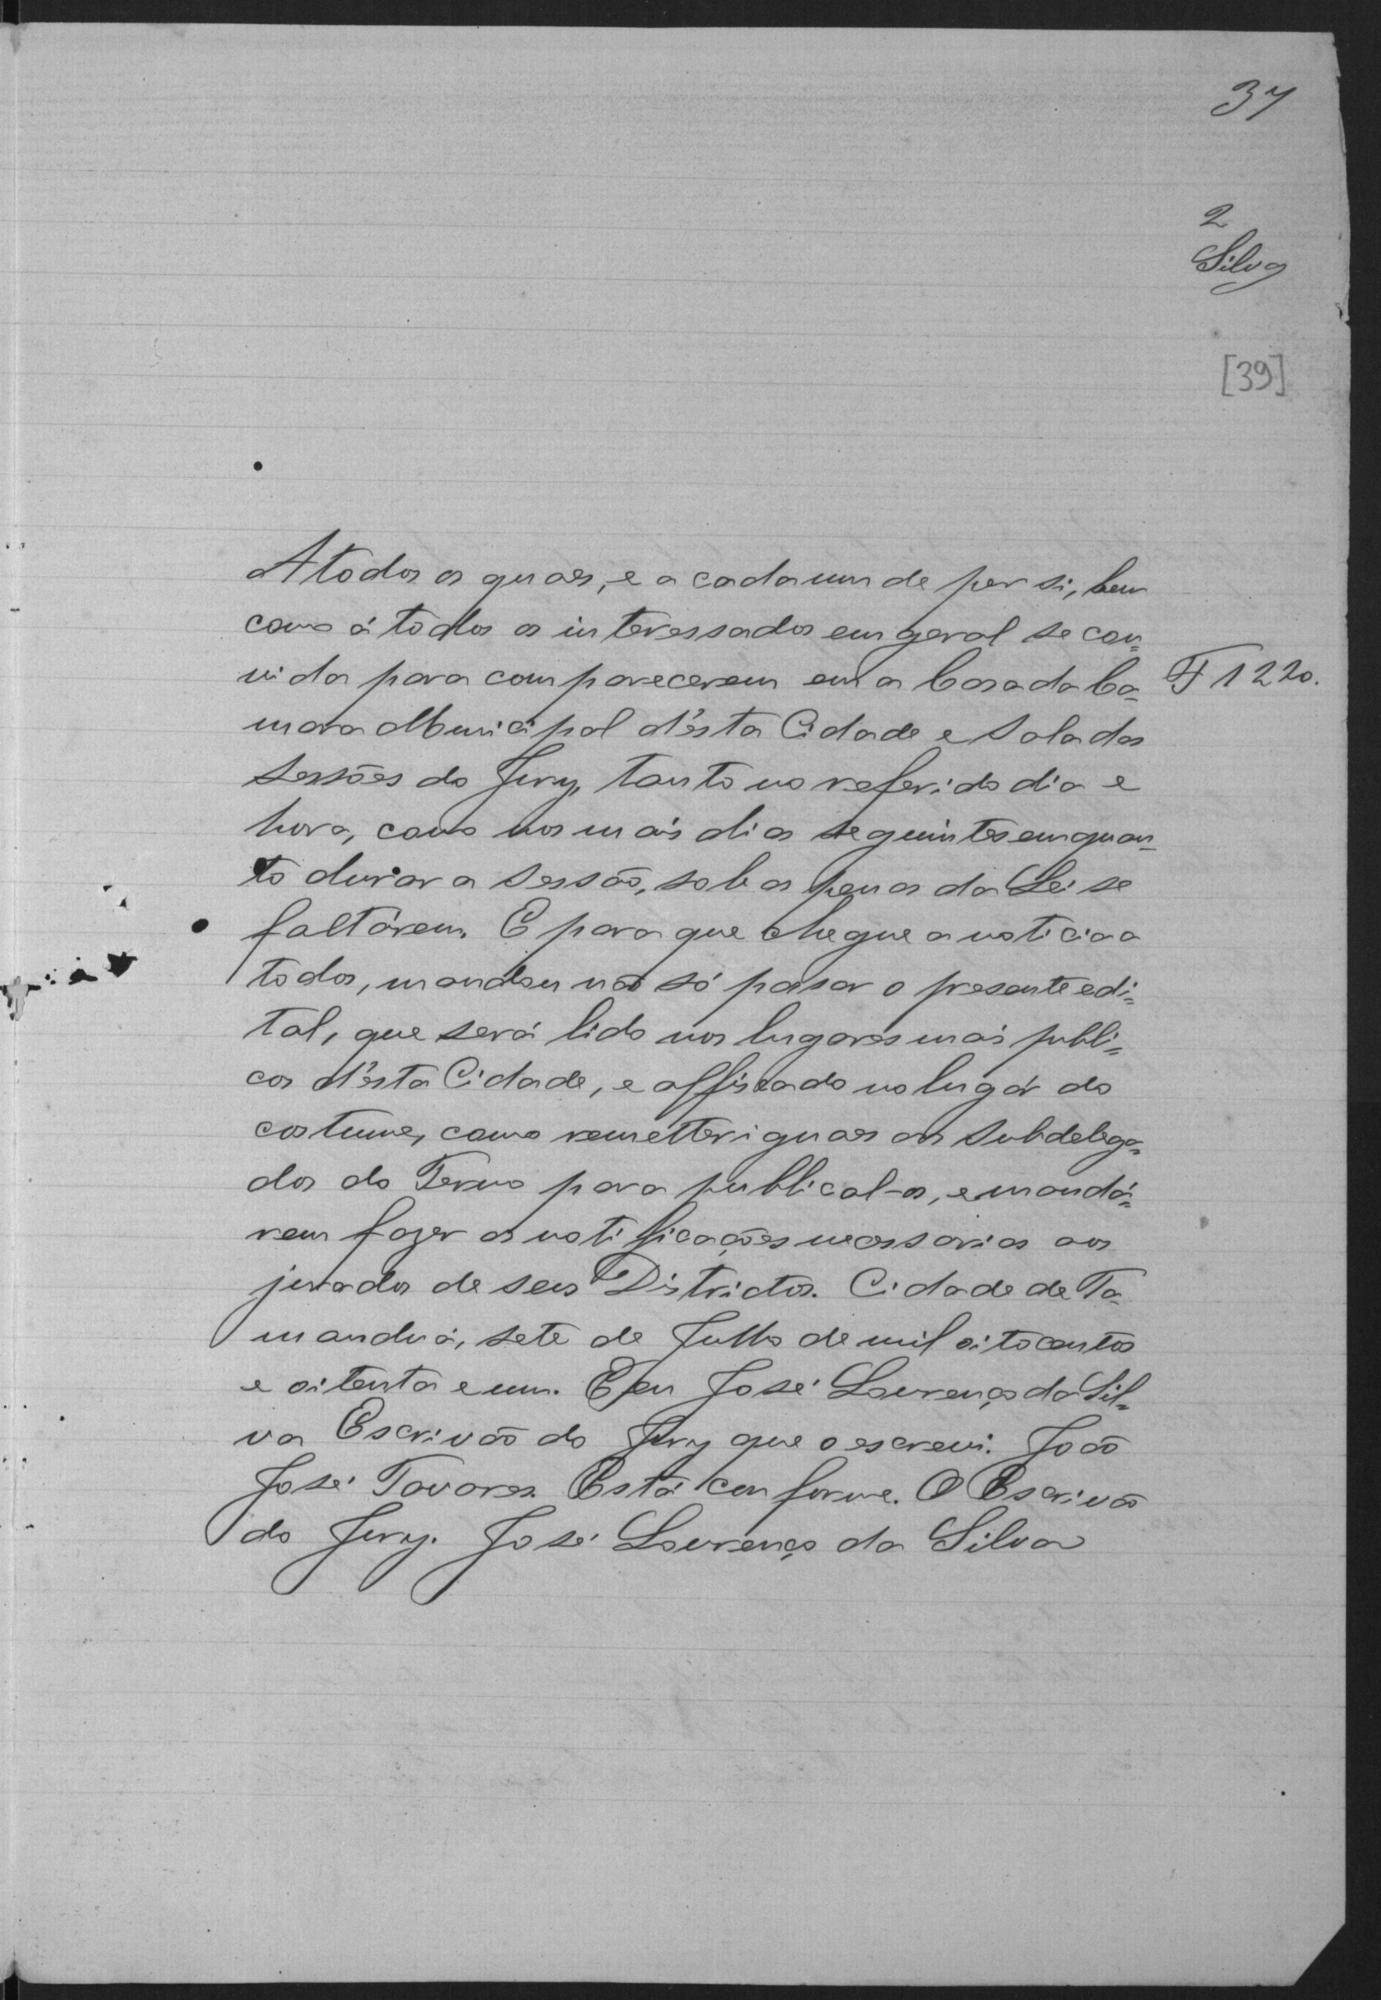 37
2
Silva
[39]
A todos os quaes, e a cada um de per si, bem
como á todos os interessados em geral se con=
vida para comparecerem em a Casa da Ca=
F 1220.
mara Municipal d'ésta Cidade e Sala das
Sessões do Jury, tanto no referido dia e
hora, como nos mais dias seguintes emquan=
to durar a Sessão, sob as penas da Lei se
faltárem. E para que chegue a noticia a
todos, mandou não só passar o presente edi=
tal, que será lido nos lugares mais publi=
cos d'ésta Cidade, e affixado no lugár do
costume, como remetter iguaes aos Subdelega=
dos do Termo para publical-os, e mandá=
rem fazer as notificações necessarias aos
jurados de seus Districtos. Cidade de Ta=
manduá, sete de Julho de mil oitocentos
e oitenta e um. Eu José Lourenço da Sil=
va Escrivão do Jury que o escrevi. João
José Tavares. Está conforme. O Escrivão
do Jury. José Lourenço da Silva